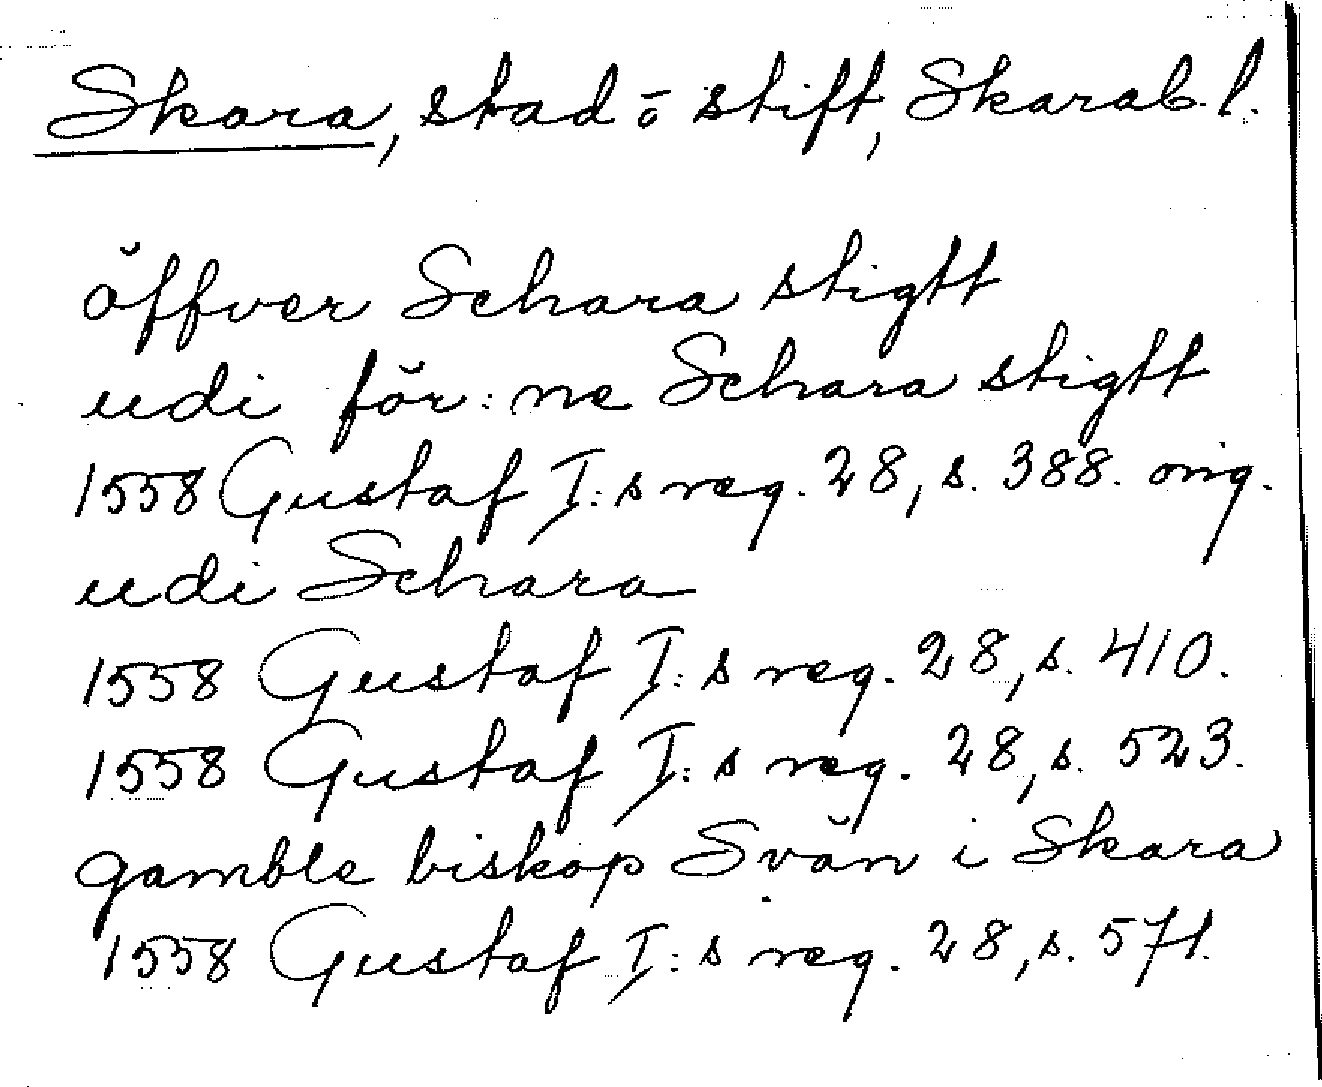 Skara, stad o stift, Skarab. l.
öffver Schara stigtt
udi för: ne Schara stigtt
1558 Gustaf I: s reg. 28, s. 388. orig.
udi Schara
1558 Gustaf I: s reg. 28, s. 410.
1558 Gustaf I: s reg. 28, s. 523.
gamble biskop Svän i Skara
1558 Gustaf I: s reg. 28, s. 571.